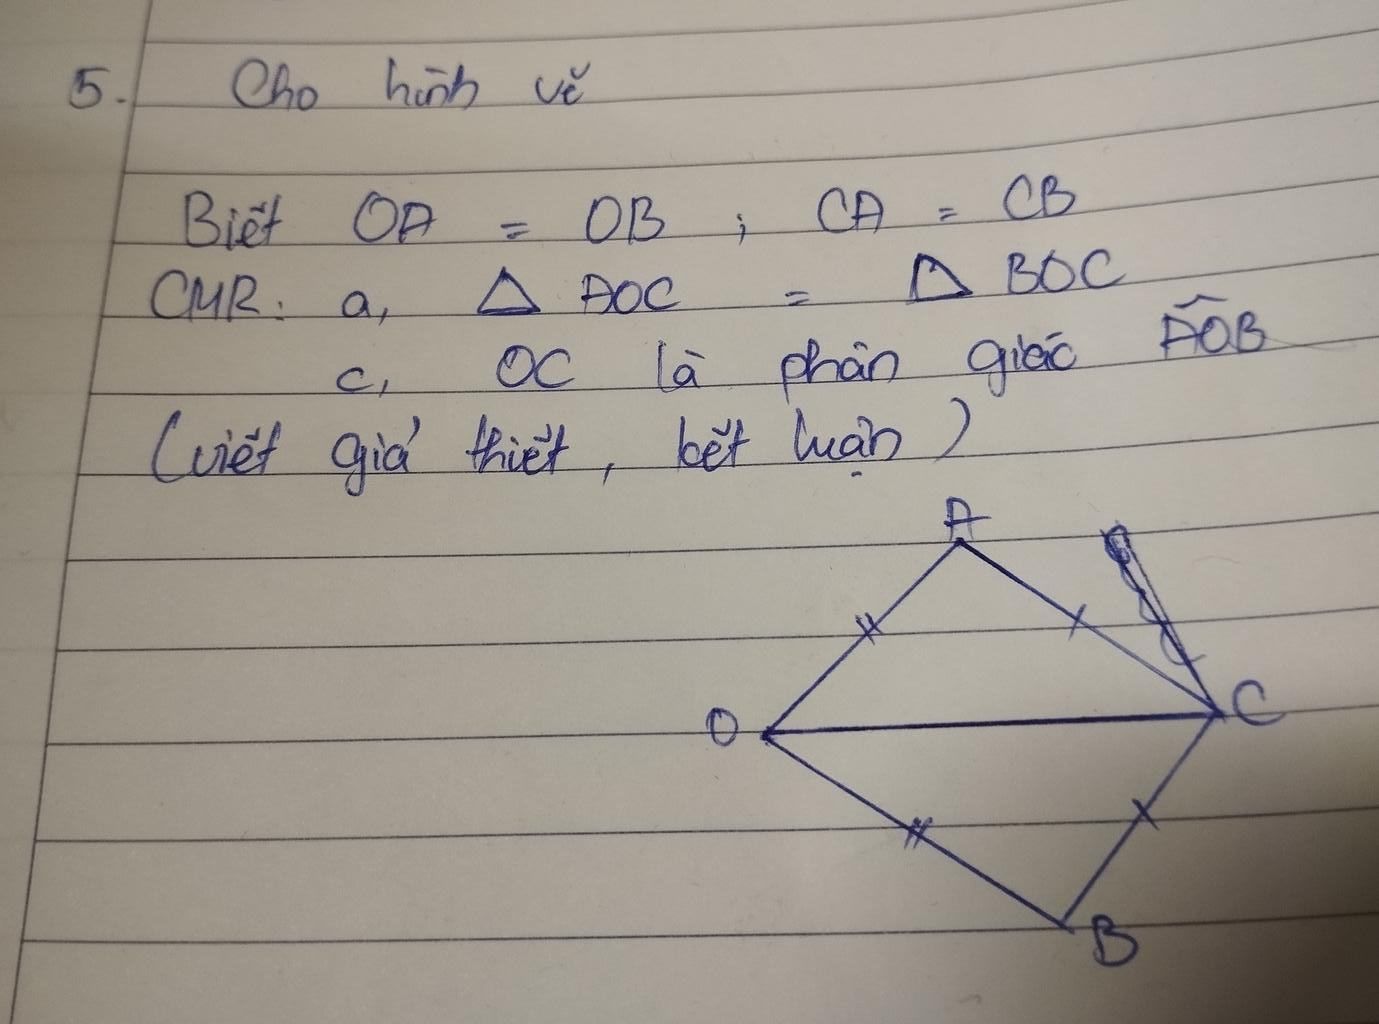 5. Cho hình vẽ
Biết OA = OB ; CA = CB
CMR: a, △ AOC = △ BOC
c, OC là phân giác AOB
(viết giả thiết, kết luận)
A
O
C
B